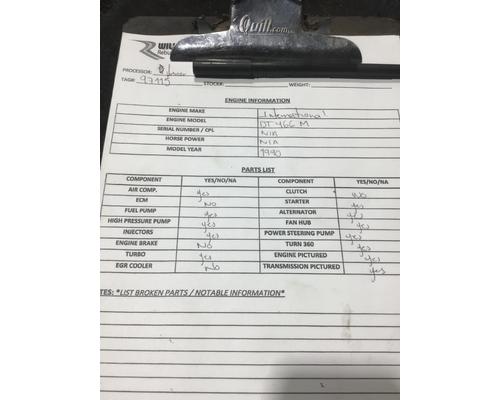 Quill.com
WILL
Rebu
PROCESSOR:
TAG#: 97115 STOCK#: WEIGHT:
ENGINE INFORMATION
ENGINE MAKE International
ENGINE MODEL DT 466 M
SERIAL NUMBER / CPL N/A
HORSE POWER N/A
MODEL YEAR 1990
PARTS LIST
COMPONENT YES/NO/NA COMPONENT YES/NO/NA
AIR COMP. yes CLUTCH NO
ECM NO STARTER yes
FUEL PUMP yes ALTERNATOR yes
HIGH PRESSURE PUMP yes FAN HUB yes
INJECTORS yes POWER STEERING PUMP yes
ENGINE BRAKE NO TURN 360 yes
TURBO yes ENGINE PICTURED yes
EGR COOLER NO TRANSMISSION PICTURED yes
TES: *LIST BROKEN PARTS / NOTABLE INFORMATION*